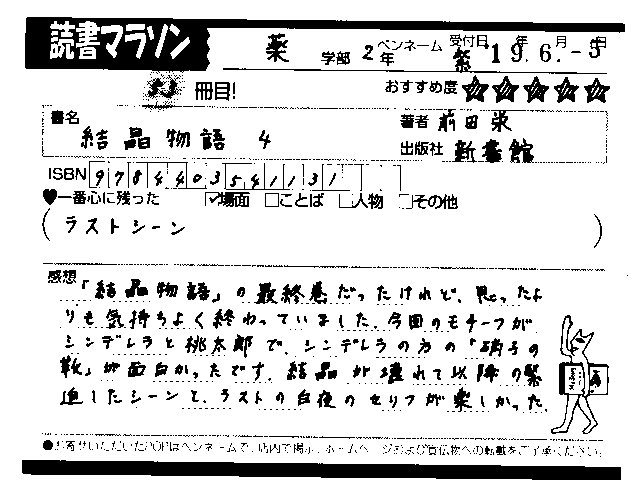 読書マラソン
薬 学部 2年 ペンネーム 祭 受付日 '19年 6月-5日
冊目! おすすめ度 ★★★★★
書名 結晶物語 4
著者 前田栄
出版社 新書館
ISBN 9784403541131
♥一番心に残った ☑場面 □ことば □人物 □その他
(ラストシーン)
感想
「結晶物語」の最終巻だったけれど、思ったよ
りも気持ちよく終わっていました。今回のモチーフが
シンデレラと桃太郎で、シンデレラの方の「硝子の
靴」が面白かったです。結晶が壊れて以降の緊
迫したシーンと、ラストの白夜のセリフが楽しかった。
●お寄せいただいたPOPはペンネームで、店内で掲示、ホームページおよび宣伝物への転載をご了承ください。